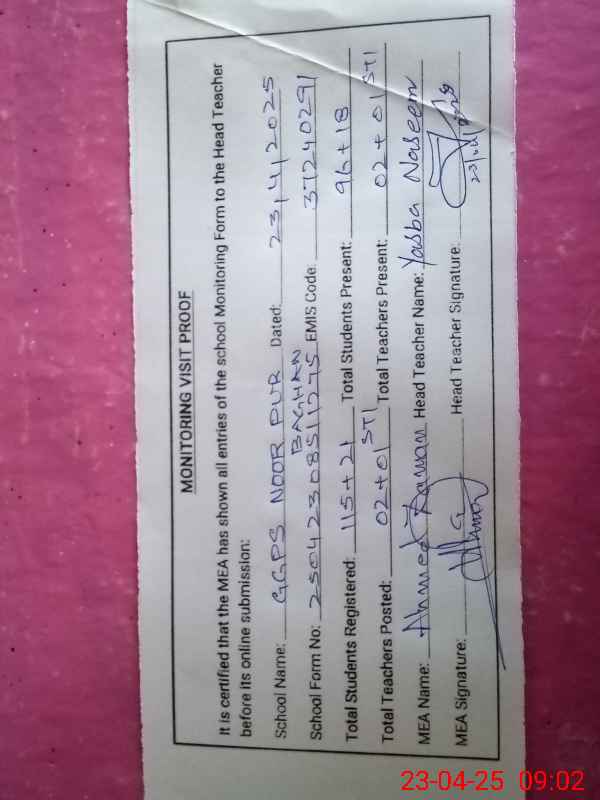 MONITORING VISIT PROOF
It is certified that the MEA has shown all entries of the school Monitoring Form to the Head Teacher
before its online submission:
School Name: GGPS NOOR PUR BAGHAN Dated: 23/4/2025
School Form No: 25042308511275 EMIS Code: 37240291
Total Students Registered: 115+21 Total Students Present: 96+18
Total Teachers Posted: 02+01 STI Total Teachers Present: 02+01 STI
MEA Name: Ahmed Zaman Head Teacher Name: Yasba Naseem
MEA Signature: Head Teacher Signature:
23-04-25 09:02